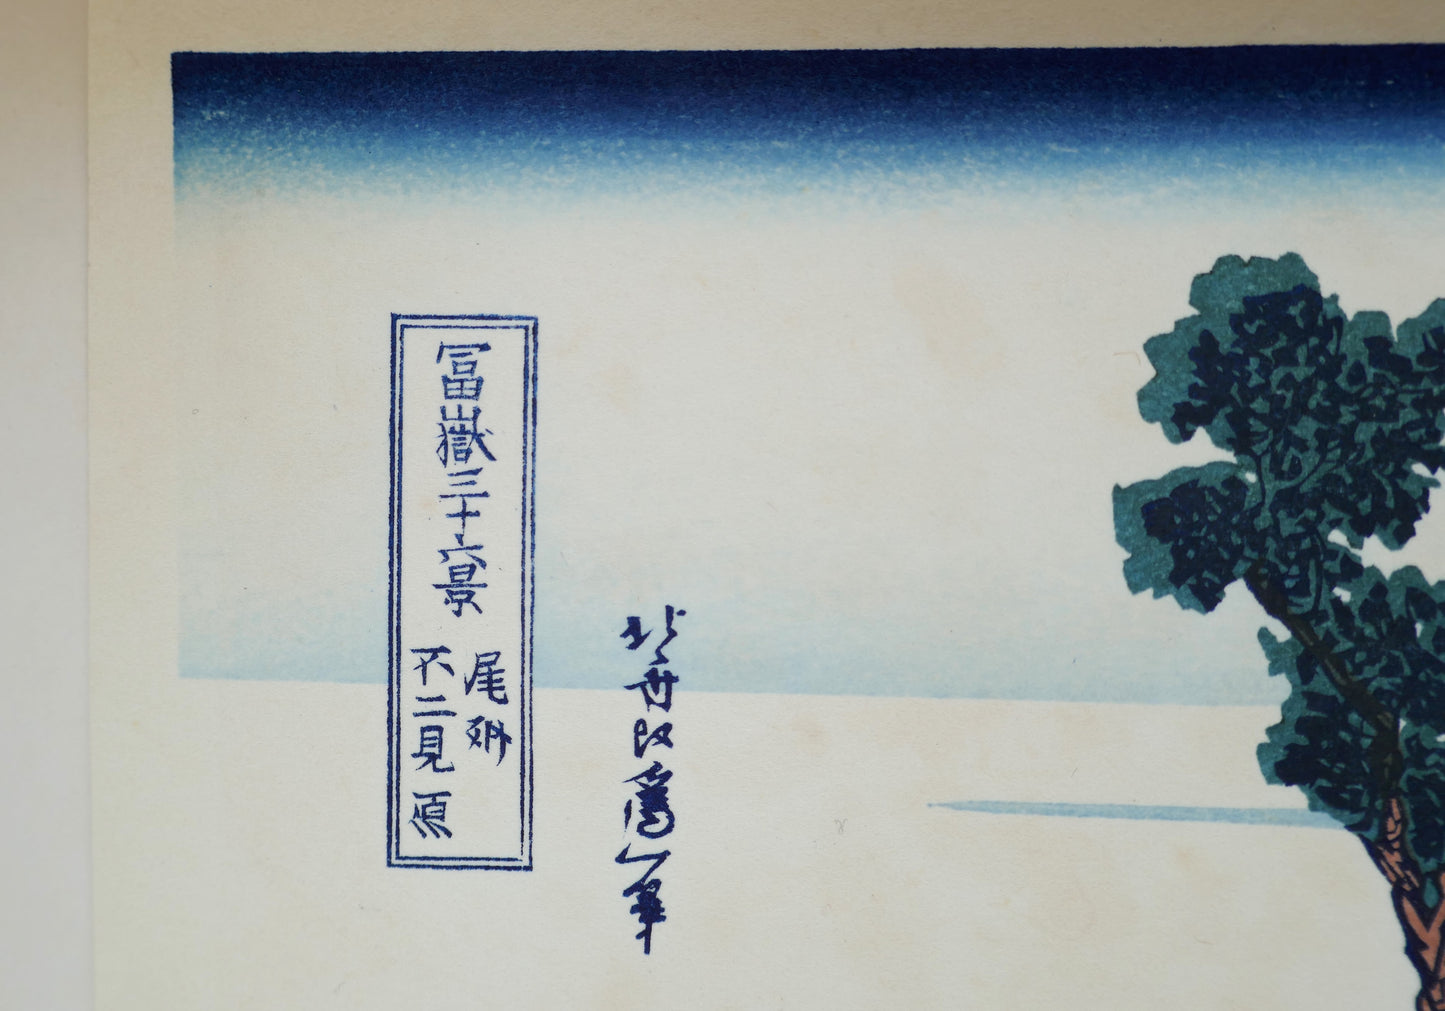 冨嶽三十六景
尾州
不二見原
北斎改為一筆